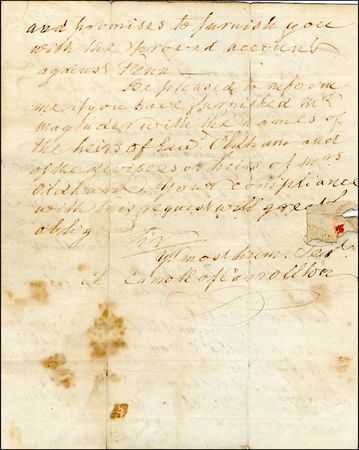 and promises to furnish you
with the proved account
against Penn
Be pleased to inform
me if you have furnished Mr.
Magruder with the names of
the heirs of Edwd. Oldham and
of the devisees or heirs of Mrs
Oldham. Your compliance
with this request will greatly
oblige
Sir
Yr. most hum. Servt.
Ch Carroll of Carrollton